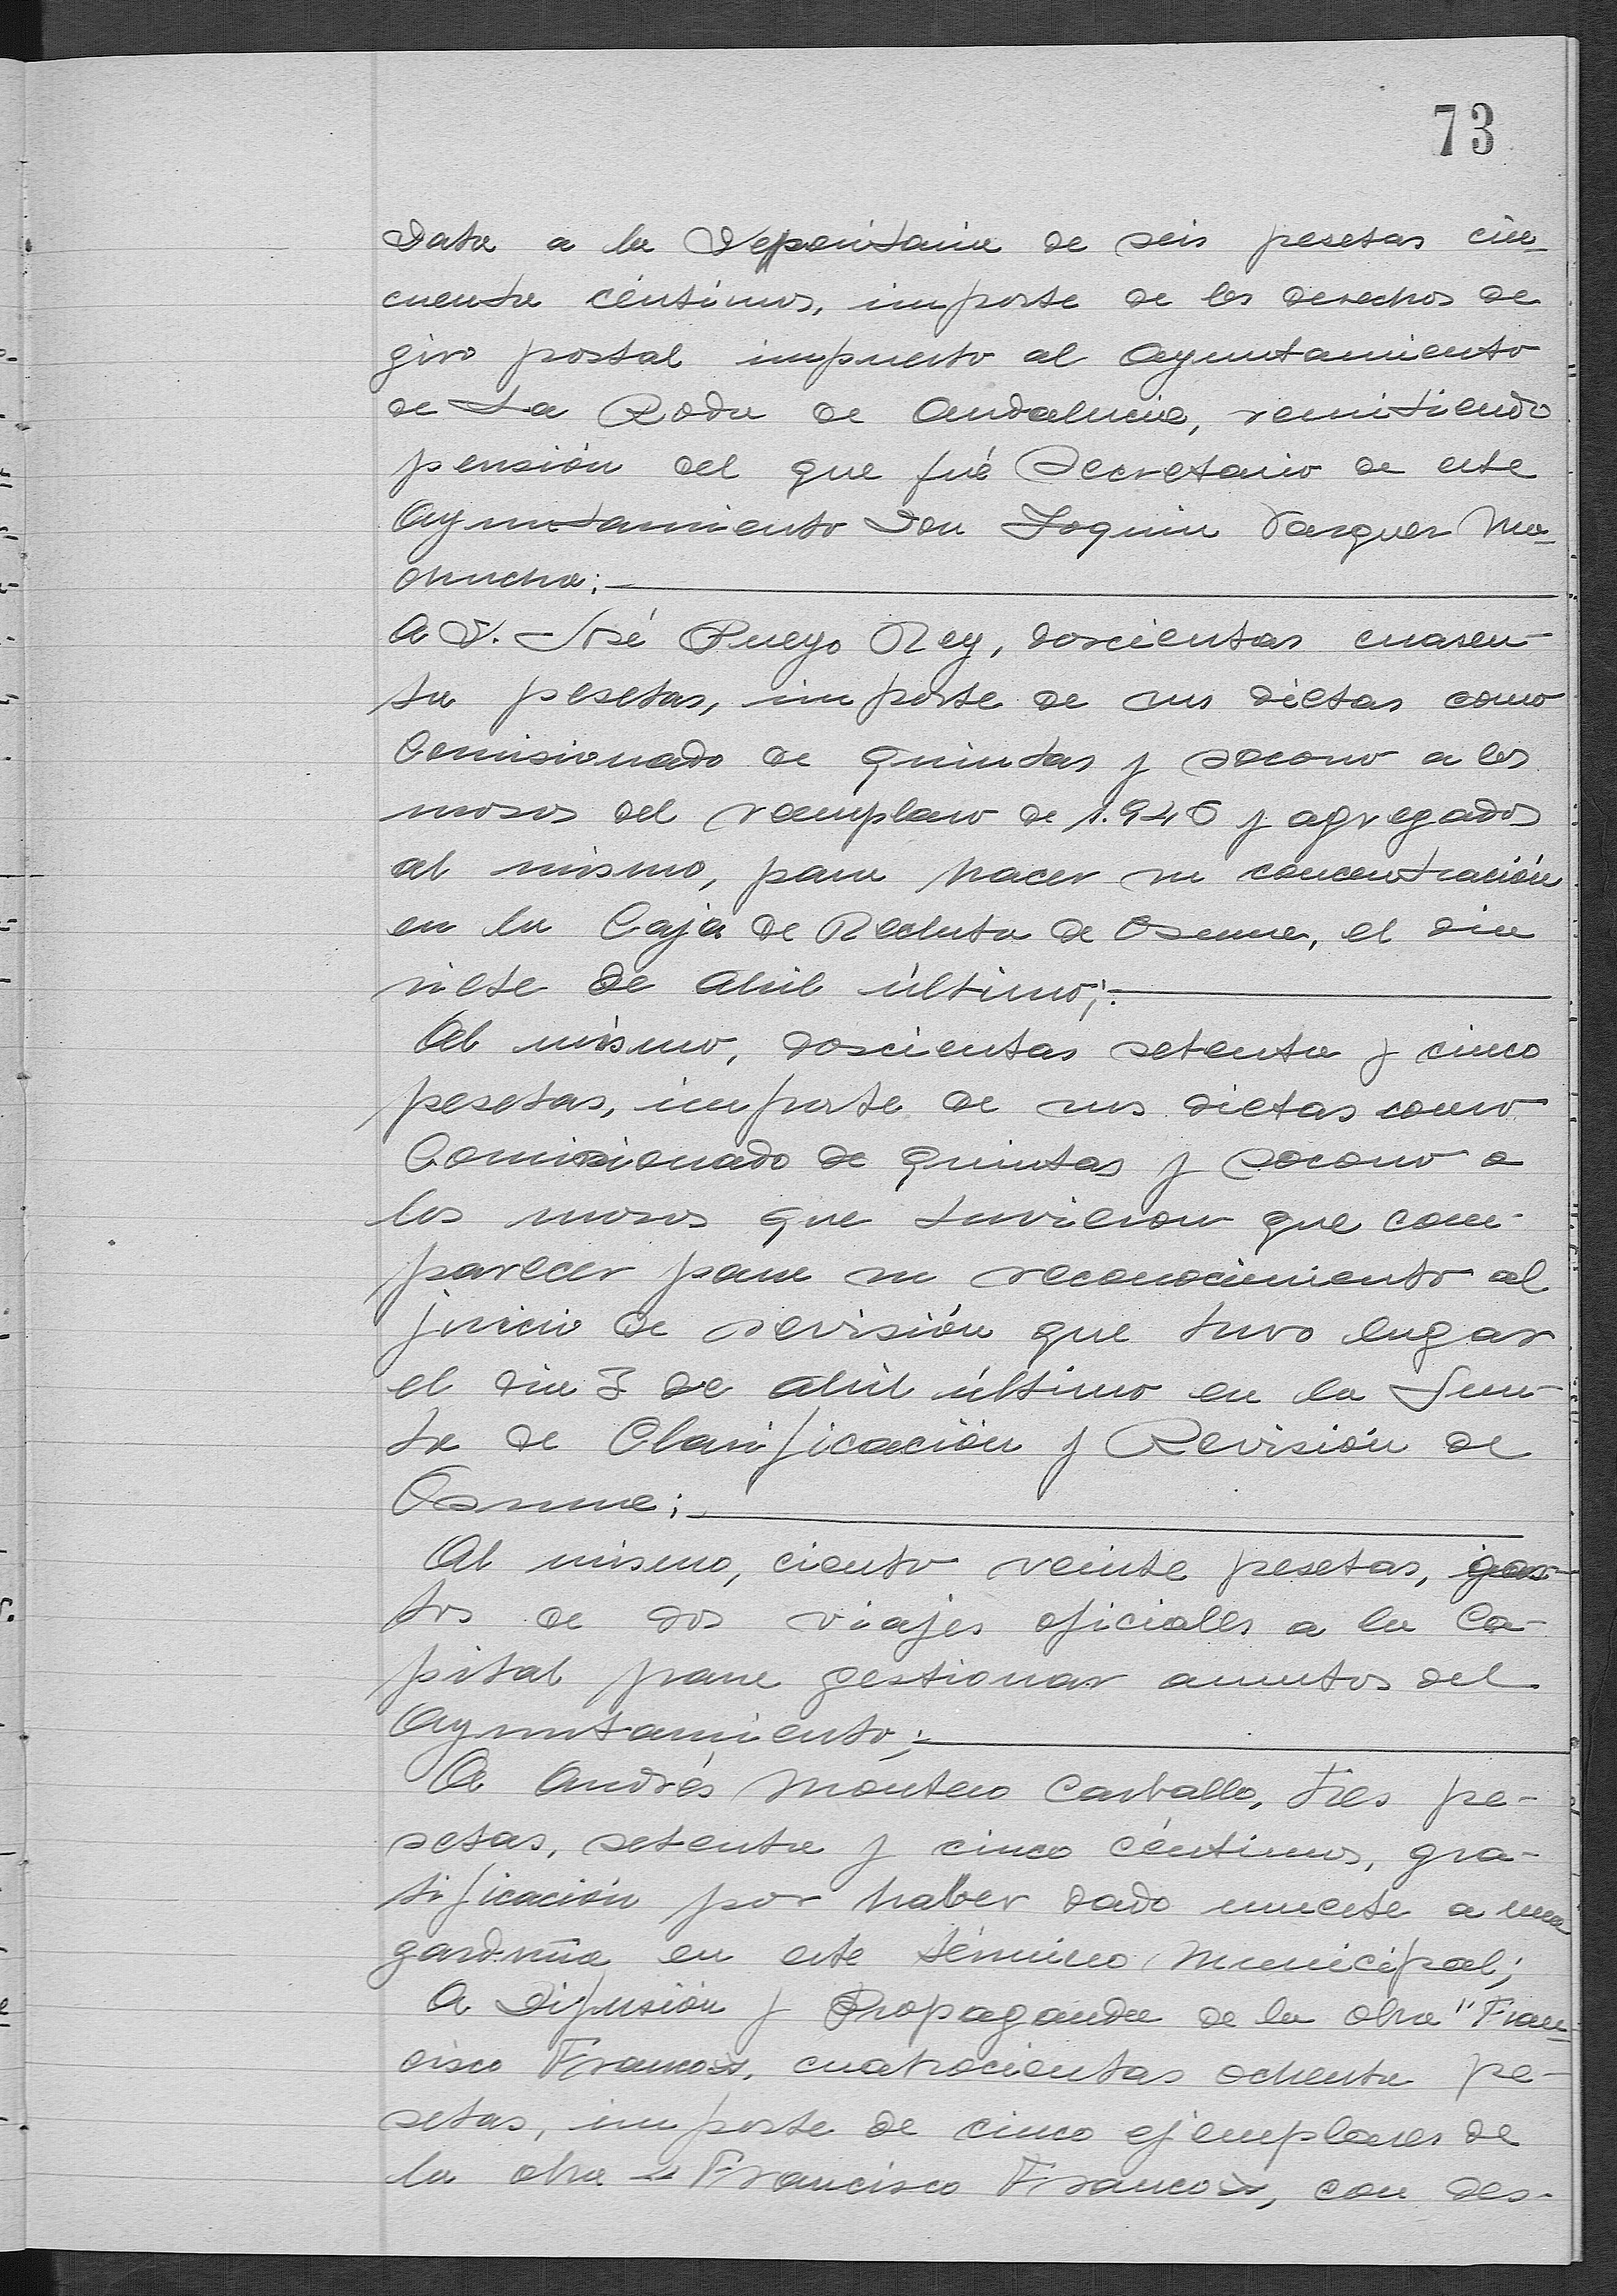 73
Data a la Depositaria de seis pesetas cin-
cuenta céntimos, importe de los derechos de
giro postal impuesto al Ayuntamiento
de La Roda de Andalucia, remitiendo
pensión del que fué Secretario de este
Ayuntamiento Don Joquin Vazquez Ma-
chucha;
A D. José Pueyo Rey, doscientas cuaren-
ta pesetas, importe de sus dietas como
Comisionado de quintas y socorro a los
mozos del reemplazo de 1.946 y agregados
al mismo, para hacer su concentración
en la Caja de Recluta de Osuna, el dia
siete de Abril último;
Al mismo, doscientas setenta y cinco
pesetas, importe de sus dietas como
Comisionado de quintas y socorro a
los mozos que tuvieron que com-
parecer para su reconocimiento al
juicio de revisión que tuvo lugar
el dia 3 de abril último en la Jun-
ta de Clasificación y Revisión de
Osuna;
Al mismo, ciento veinte pesetas, gas-
tos de dos viajes oficiales a la Ca-
pital para gestionar asuntos del
Ayuntamiento;
A Andrés Montero Carballo, tres pe-
setas, setenta y cinco céntimos, gra-
tificación por haber dado muerte a una
garduña en este término Municipal;
A Difusión y Propaganda de la obra "Fran-
cisco Franco», cuatrocientas ochenta pe-
setas, importe de cinco ejemplares de
la obra «Francisco Franco», con des-